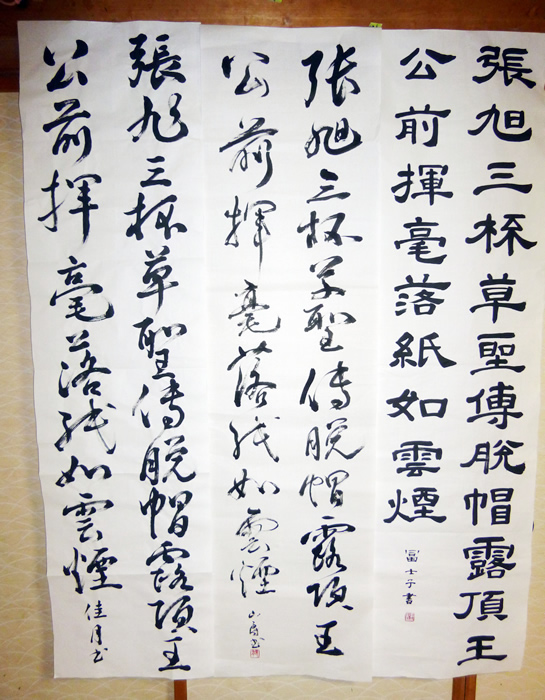 張旭三杯草聖傳脱帽露頂王
公前揮毫落紙如雲煙
富士子書
張旭三杯草聖傳脱帽露頂王
公前揮毫落紙如雲煙
張旭三杯草聖傳脱帽露頂王
公前揮毫落紙如雲煙
佳月書